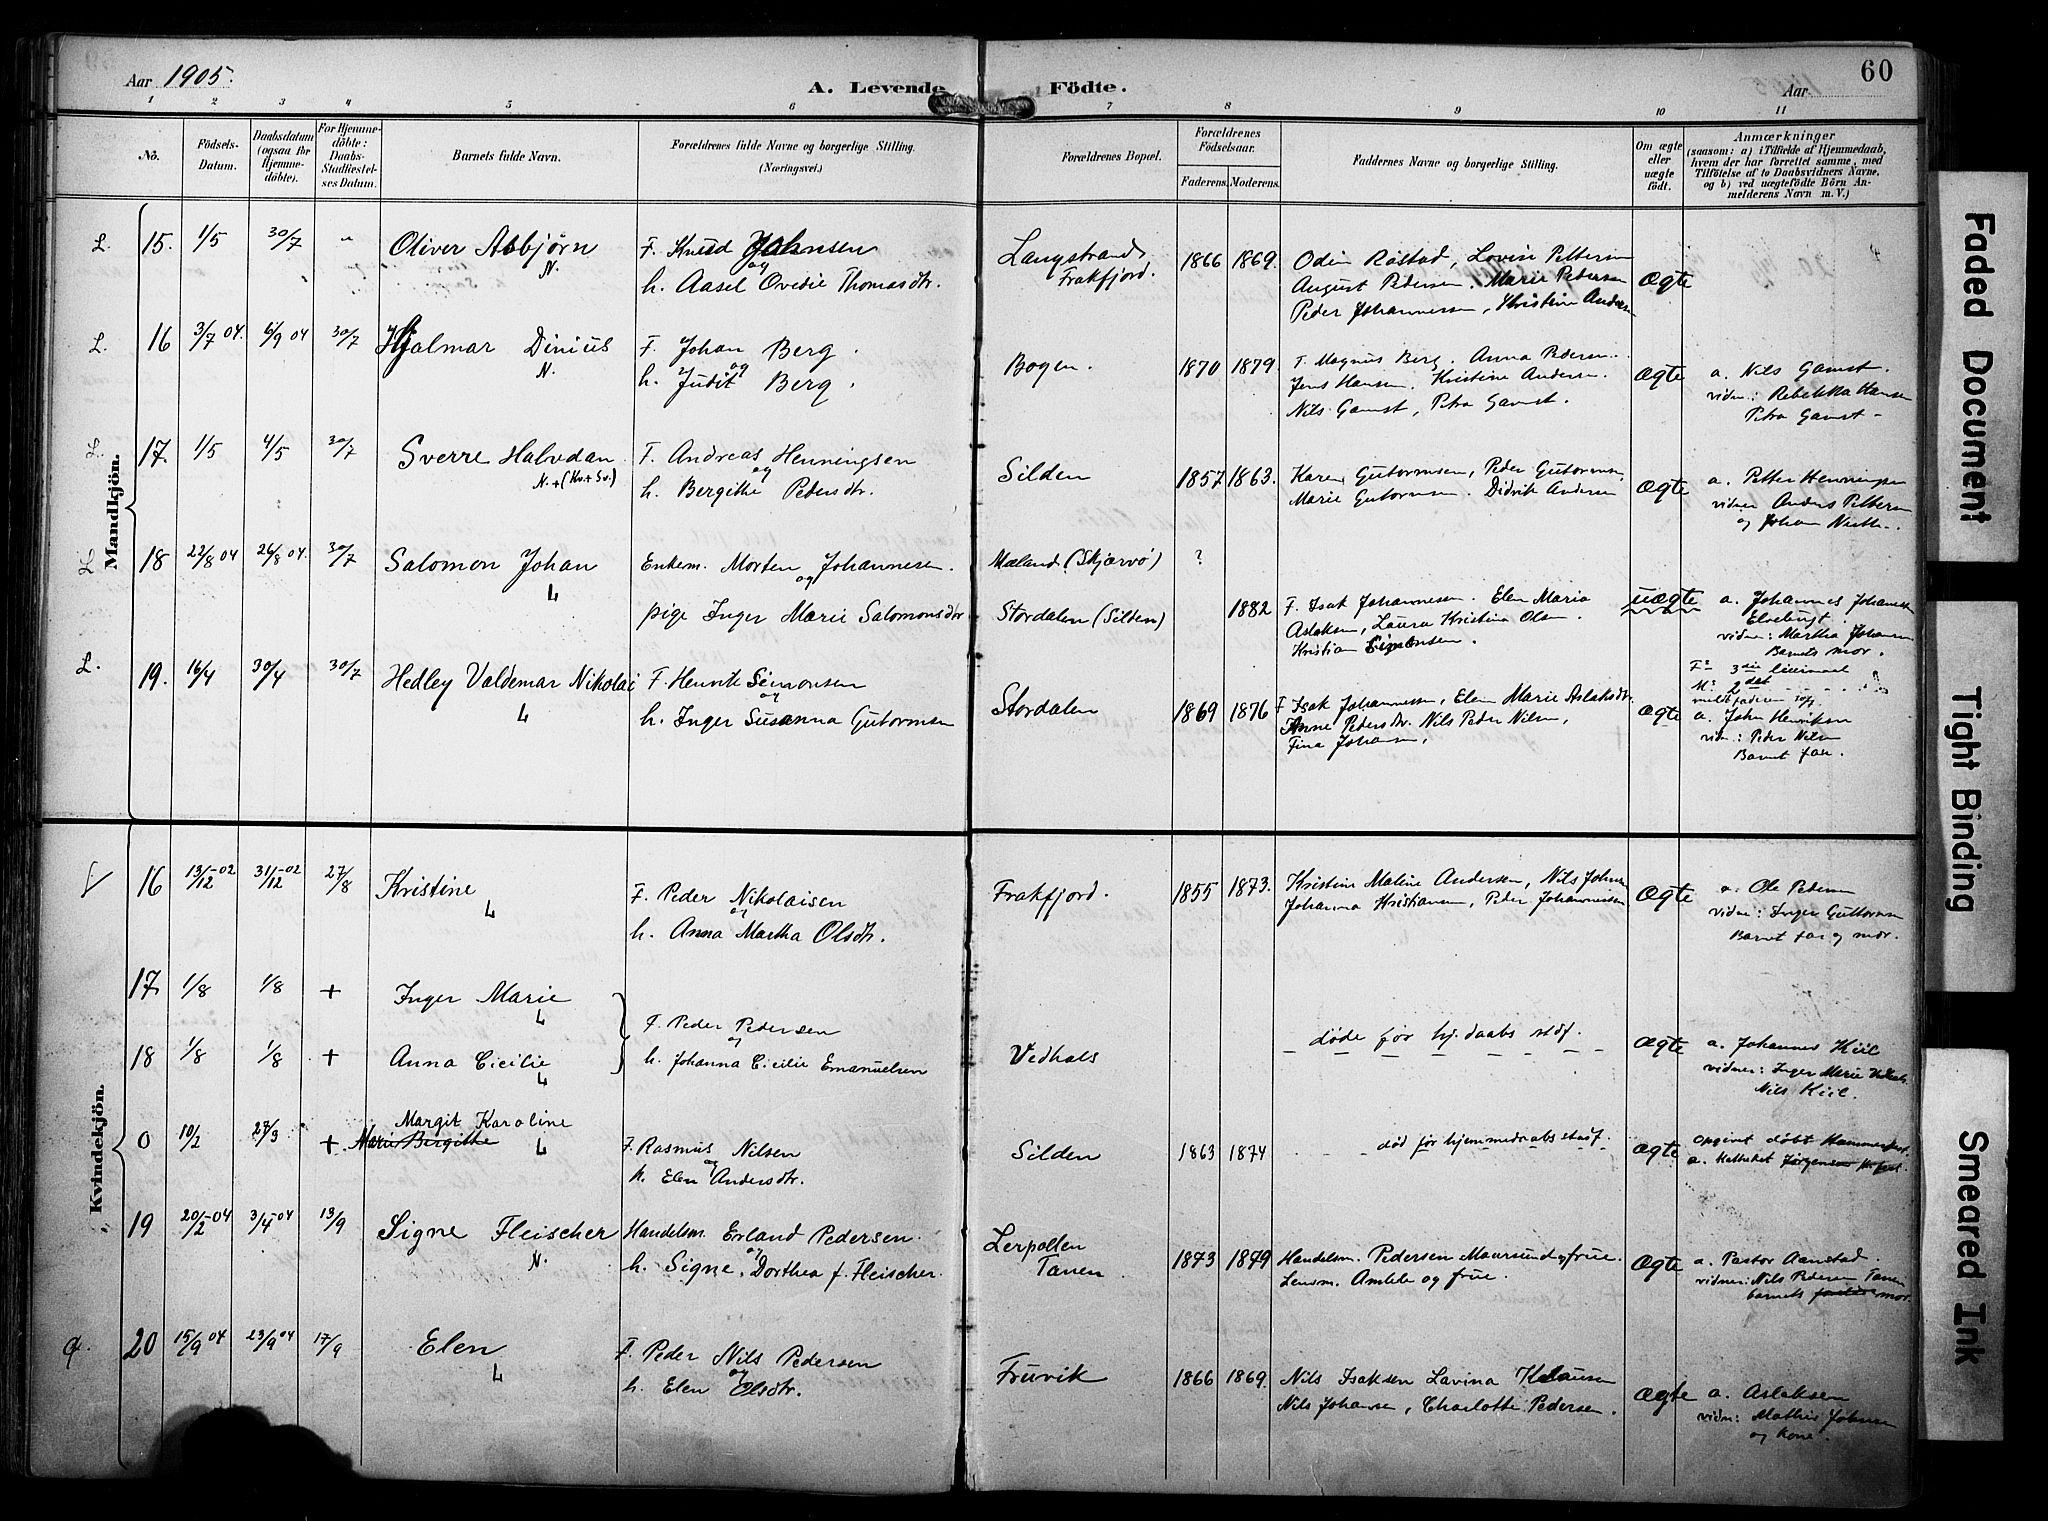 Aar 1905.
A. Levende Födte.
Aar
60
1 2 3 4 5 6 7 8 9 10 11
No.
Födsels-Datum.
Daabsdatum (ogsaa for Hjemme-döbte).
For Hjemme-döbte: Daabs-Stadfæstel-ses Datum.
Barnets fulde Navn.
Forældrenes fulde Navne og borgerlige Stilling.
(Næringsvei.)
Forældrenes Bopæl.
Forældrenes Födselsaar.
Faderens. Moderens.
Faddernes Navne og borgerlige Stilling.
Om ægte eller uægte födt.
Anmærkninger
(saasom: a) i Tilfælde af Hjemmedaab,
hvem der har forrettet samme, med
Tilföielse af to Daabsvidners Navne,
og b) ved uægtefödte Börn An-
melderens Navn m. V.)
Mandkjön.
L. 15. 1/5 30/7 " Oliver Asbjørn N.
F. Knud Johnsen
og
h. Aasel Ovedie Thomasdtr.
Langstrand Frakfjord.
1866 1869.
Odin Røstad, Lovise Pettersen
August Pedersen. Marie Pedersen
Peder Johannessen, Kristine Andersen
Ægte
L. 16 3/7 04. 6/9 04 30/7 Hjalmar Dinius N.
F. Johan Berg.
og
h. Judit Berg.
Bogen.
1870 1879.
F. Magnus Berg. Anna Pedersen.
Jens Hansen. Kristine Andersen.
Nils Gamst, Petra Gamst.
Ægte
a. Nils Gamst.
vidner: Rebekka Hansen
Petra Gamst
L 17. 1/5 4/5 30/7 Sverre Halvdan
N. + (Kv. + Sv.)
F. Andreas Henningsen
og
h. Bergithe Pedersdtr.
Silden
1857 1863.
Karen Gutormsen, Peder Gutormsen,
Marie Gutormsen. Didrik Andersen
Ægte
a. Petter Henningsen
vidner Anders Pettersen
og Johan
L 18 22/8 04 26/8 04. 30/7 Salomon Johan L
Enkem. Morten Johannesen.
og
pige Inger Marie Salomonsdtr
Mæland (Skjærvö)
Stordalen (Silden)
? 1882
F. Isak Johannesen. Elen Maria
Aslaksen, Laura Kristina Olsen.
Kristian Simonsen.
uægte
a. Johannes Johansen
Elvebugt.
vidne: Martha Johansen
Barnets mor.
F: 3die leiermaal
M: 2det
L. 19. 16/4 30/4 30/7 Hedley Valdemar Nikolai L
F. Henrik Simonsen
og
h. Inger Susanna Gutormsen
Stordalen
1869 1876
F Isak Johannessen, Elen Marie Aslaksdtr.
Anne Pedersdtr. Nils Peder Nilsen,
Fina Johansen,
Ægte
a. John Henriksen
vidn: Peder Nilsen
Barnets far.
Kvindekjön.
16 13/12-02 31/12-02 27/8 Kristine L
F. Peder Nikolaisen
og
h. Anna Martha Olsdtr.
Frakfjord.
1855 1873.
Kristine Maline Andersen, Nils Johnsen
Johanna Kristiansen, Peder Johannessen
Ægte
a. Ole Pedersen
vidner: Inger Guttormsen
Barnets far og mor.
17. 1/8 1/8 + Inger Marie L
18 1/8 1/8 + Anna Cicilie L
F. Peder Pedersen
og
h. Johanna Cicilie Emanuelsen
Vedhals
døde før hj. daabs stdf.
Ægte
a. Johannes Kiil
vidner: Inger Marie
Nils Kiil.
0 10/2 27/3 + Margit Karoline
Marie Bergithe L
F. Rasmus Nilsen
og
h. Elen Andersdtr.
Silden
1863 1874
død før hjemmedaabs stadf.
Ægte
opgivet døbt Hammerfest.
a. Katheket Jørgensen H.fest.
19 20/2-04 3/4-04 13/9 Signe Fleischer N.
Handelsm. Erland Pedersen.
og
h. Signe Dorthea f. Fleischer.
Lerpollen
Tanen
1873 1879
Handelsm. Pedersen Maursund og frue.
Lensm. Amble og frue.
Ægte
a. Pastor Aanstad.
vidner: Nils Pedersen Tanen
barnets mor.
20 15/9 04 23/9 04 17/9 Elen L
F. Peder Nils Pedersen
og
h. Elen Olsdtr.
Fruvik
1866 1869.
Nils Isaksen Lavina Klausen
Nils Johansen, Charlotte Pedersen.
Ægte
a. Aslaksen
vidn: Mathis Johnsen
og kone.
Faded Document
Tight Binding
Smeared Ink